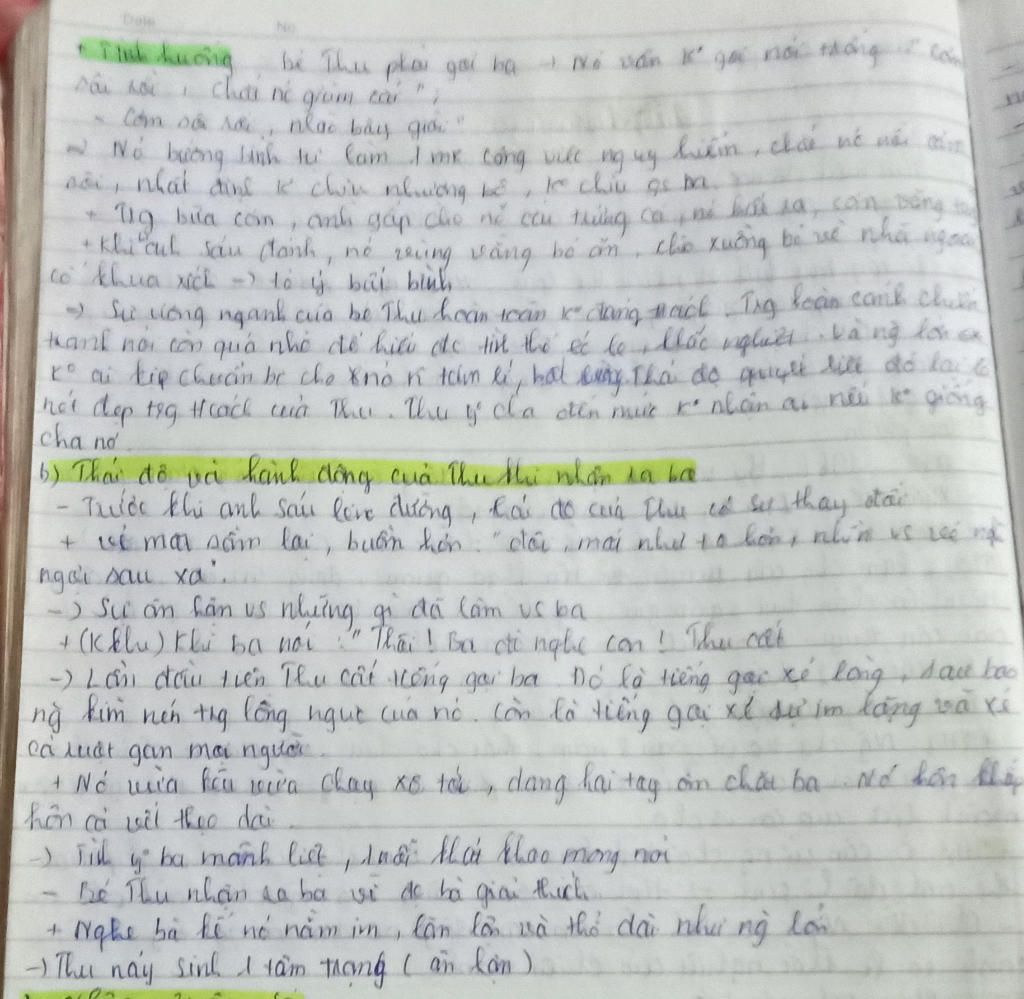 Date No
+ Tình huống bé Thu phải gọi ba → Nó vẫn k° gọi nói trống "Cơm
sôi rồi, chắt nc giùm cái";
- Cơm sôi rồi, nhão bây giờ."
→ Nó bướng bỉnh tự làm 1 mk công việc nguy hiểm, chắt nc nồi cơm
sôi, nhất định k° chịu nhượng bộ, k° chịu gọi ba
+ Trg bữa cơm, anh gắp cho nó cái trứng cá, nó hất ra, cơm văng
+ Khi anh Sáu đánh, nó vùng vằng bỏ ăn, chèo xuồng bỏ về nhà ngoại
cố khua xích → tỏ ý bất bình
→ Sự ương ngạnh của bé Thu hoàn toàn k° đáng trách. Trg hoàn cảnh chiến
tranh nó còn quá nhỏ để hiểu đc tình thế éo le, khắc nghiệt. Và ng lớn
k° ai kịp chuẩn bị cho khó tâm lí, Thái độ quyết liệt đó lại là
nét đẹp trg cách của Thu. Thu y cha đến mức k° nhận ai nếu k° giống
cha nó
b) Thái độ và hành động của Thu khi nhận ra ba
- Trước khi anh Sáu lên đường, thái độ của Thu có sự thay đổi
+ vẻ mặt sầm lại, buồn hơn: "đôi mắt như to hơn, nhìn vs vẻ
ngợi sâu xa".
→ Sự ân hận vs những gì đã làm vs ba
+ (K kìu) Khi ba nói: "Thôi! Ba đi nghe con! Thu cất
→ Lần đầu tiên Thu cất tiếng gọi ba. Đó là tiếng gọi xé lòng, sau bao
ng kìm nén trg lồng ngực của nó. Còn là tiếng gọi xé sự im lặng và xé
cả ruột gan mọi người
+ Nó vừa kêu vừa chạy xô tới, dang hai tay ôm chặt ba. Nó hôn khắp
hôn cả vết thẹo dài
→ Tình y ba mãnh liệt, khát khao mong mỏi
- Bé Thu nhận ra ba vì đc bà giải thích
+ Nghe bà kể nó nằm im, lăn lộn và thở dài như ng lớn
→ Thu nảy sinh 1 tâm trạng (ân hận)